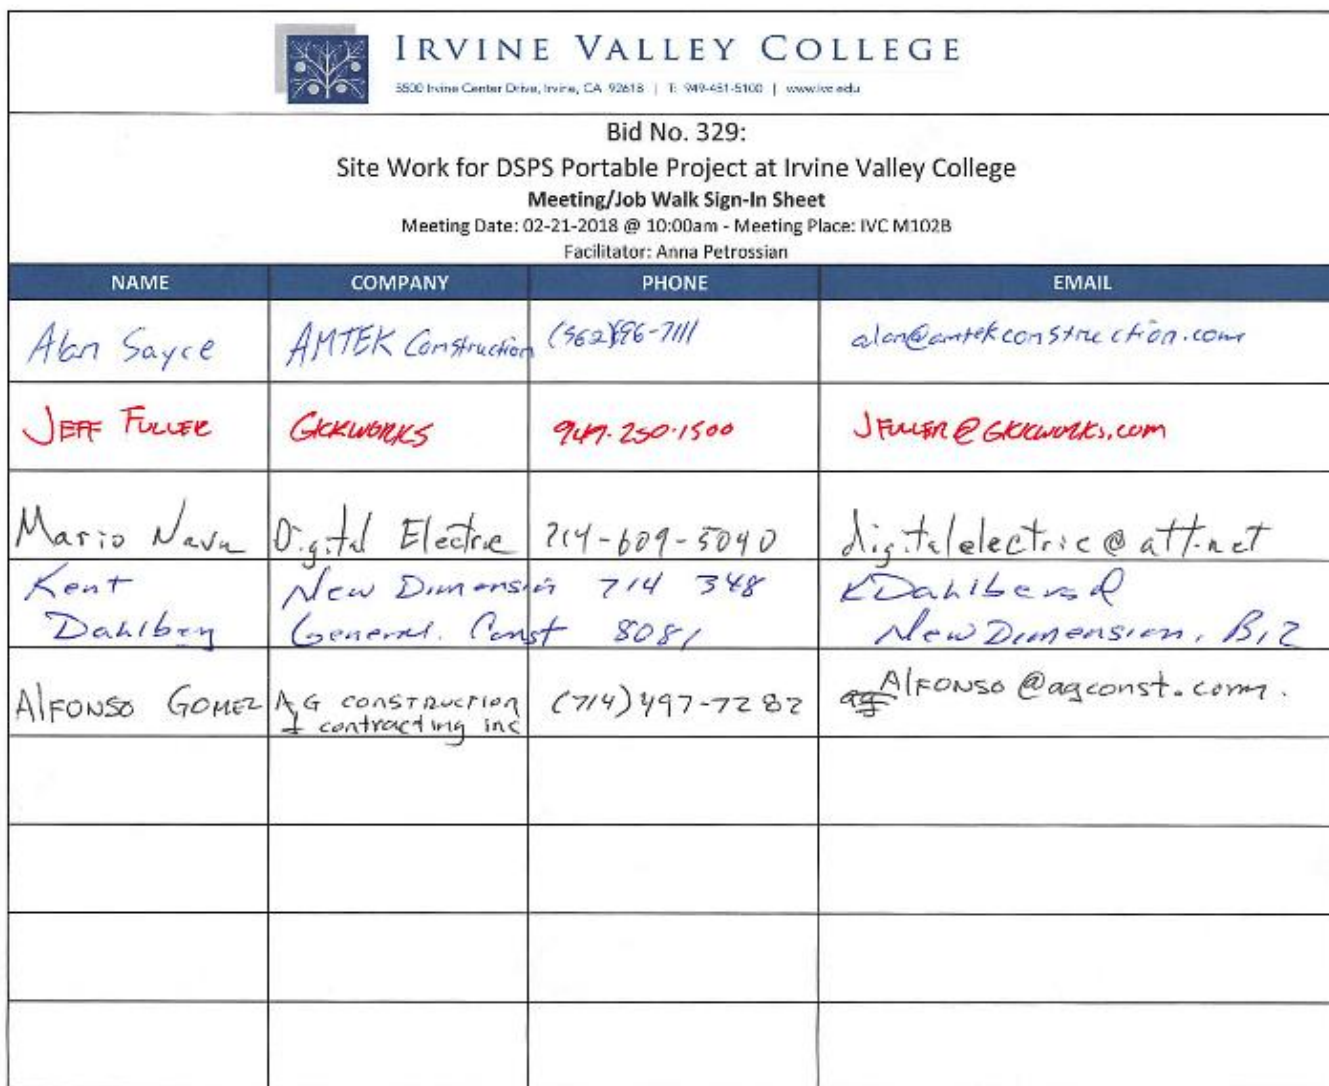 IRVINE VALLEY COLLEGE
5500 Irvine Center Drive, Irvine, CA 92618 | T: 949-451-5100 | www.ivc.edu
Bid No. 329:
Site Work for DSPS Portable Project at Irvine Valley College
Meeting/Job Walk Sign-In Sheet
Meeting Date: 02-21-2018 @ 10:00am - Meeting Place: IVC M102B
Facilitator: Anna Petrossian
NAME COMPANY PHONE EMAIL
Alan Sayce AMTEK Construction (562)696-7111 alan@amtekconstruction.com
JEFF FULLER GKKWORKS 949.250.1500 JFULLER@GKKWORKS.com
Mario Nava Digital Electric 714-609-5040 digitalelectric@att.net
Kent New Dimension 714 348 KDahlberg@
Dahlberg General. Const 8081 New Dimension. Biz
Alfonso GOMEZ AG construction (714)497-7282 Alfonso@agconst.com.
& contracting inc